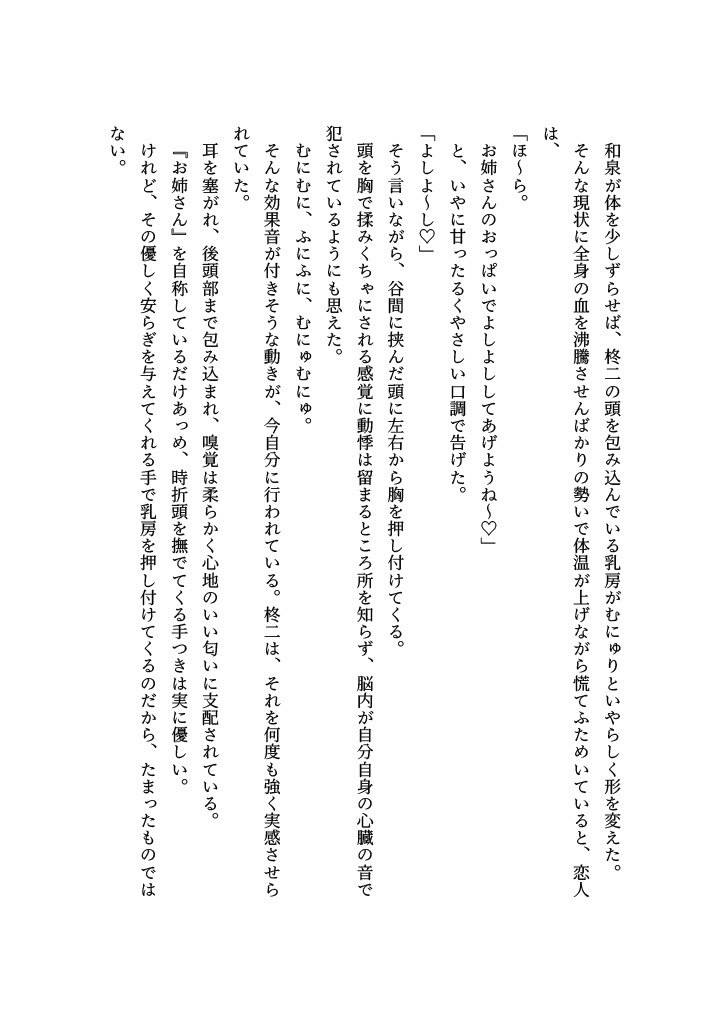 和泉が体を少しずらせば、柊二の頭を包み込んでいる乳房がむにゅりといやらしく形を変えた。
　そんな現状に全身の血を沸騰させんばかりの勢いで体温が上げながら慌てふためいていると、恋人
は、
「ほ～ら。
　お姉さんのおっぱいでよしよししてあげようね～♡」
　と、いやに甘ったるくやさしい口調で告げた。
「よしよ～し♡」
　そう言いながら、谷間に挟んだ頭に左右から胸を押し付けてくる。
　頭を胸で揉みくちゃにされる感覚に動悸は留まるところ所を知らず、脳内が自分自身の心臓の音で
犯されているようにも思えた。
　むにむに、ふにふに、むにゅむにゅ。
　そんな効果音が付きそうな動きが、今自分に行われている。柊二は、それを何度も強く実感させら
れていた。
　耳を塞がれ、後頭部まで包み込まれ、嗅覚は柔らかく心地のいい匂いに支配されている。
　『お姉さん』を自称しているだけあっめ、時折頭を撫でてくる手つきは実に優しい。
　けれど、その優しく安らぎを与えてくれる手で乳房を押し付けてくるのだから、たまったものでは
ない。